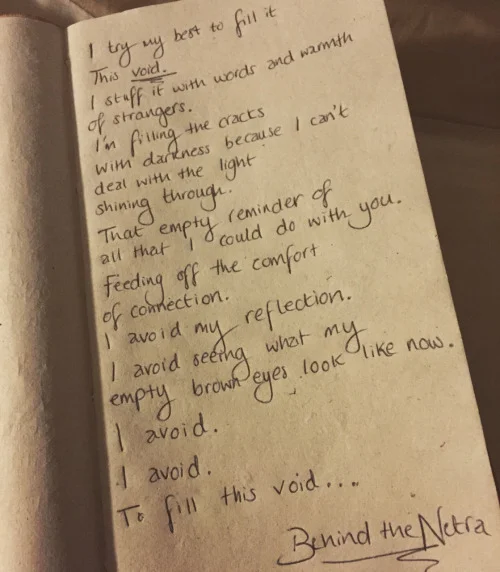 I try my best to fill it
This void.
I stuff it with words and warmth
of strangers.
I'm filling the cracts
with darkness because I can't
deal with the light
shining through.
That empty reminder of
all that I could do with you.
Feeding off the comfort
of connection.
I avoid my reflection.
I avoid seeing what my
empty brown eyes look like now.
I avoid.
I avoid.
To fill this void....
Behind the Netra